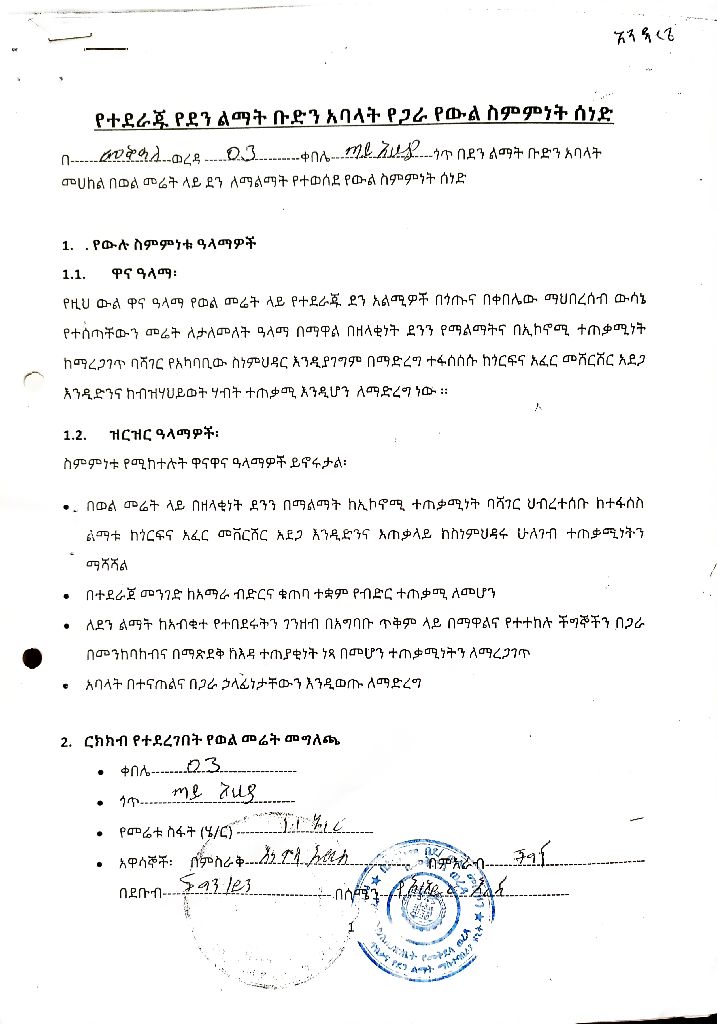 የተደራጁ የደን ልማት ቡድን አባላት የጋራ የውል ስምምነት ሰነድ
በ ወረዳ 03 ቀበሌ ጣይ ጎጥ በደን ልማት ቡድን አባላት
መሀከል በወል መሬት ላይ ደን ለማልማት የተወሰደ የውል ስምምነት ሰነድ
1. . የውሉ ስምምነቱ ዓላማዎች
1.1. ዋና ዓላማ፡
የዚህ ውል ዋና ዓላማ የወል መሬት ላይ የተደራጁ ደን አልሚዎች በጎጡና በቀበሌው ማህበረሰብ ውሳኔ
የተሰጣቸውን መሬት ለታለመለት ዓላማ በማዋል በዘላቂነት ደንን የማልማትና በኢኮኖሚ ተጠቃሚነት
ከማረጋገጥ ባሻገር የአካባቢው ስነምህዳር እንዲያገግም በማድረግ ተፋሰሱ ከጎርፍና አፈር መሸርሸር አደጋ
እንዲድንና ከብዝሃህይወት ሃብት ተጠቃሚ እንዲሆን ለማድረግ ነው ።
1.2. ዝርዝር ዓላማዎች፡
ስምምነቱ የሚከተሉት ዋናዋና ዓላማዎች ይኖሩታል፡
• በወል መሬት ላይ በዘላቂነት ደንን በማልማት ከኢኮኖሚ ተጠቃሚነት ባሻገር ህብረተሰቡ ከተፋሰስ
ልማቱ ከጎርፍና አፈር መሸርሸር አደጋ እንዲድንና አጠቃላይ ከስነምህዳሩ ሁለገብ ተጠቃሚነትን
ማሻሻል
• በተደራጀ መንገድ ከአማራ ብድርና ቁጠባ ተቋም የብድር ተጠቃሚ ለመሆን
• ለደን ልማት ከአብቁተ የተበደሩትን ገንዘብ በአግባቡ ጥቅም ላይ በማዋልና የተተከሉ ችግኞችን በጋራ
በመንከባከብና በማጽደቅ ከእዳ ተጠያቂነት ነጻ በመሆን ተጠቃሚነትን ለማረጋገጥ
• አባላት በተናጠልና በጋራ ኃላፊነታቸውን እንዲወጡ ለማድረግ
2. ርክክብ የተደረገበት የወል መሬት መግለጫ
• ቀበሌ 03
• ጎጥ ጣይ
• የመሬቱ ስፋት (ሄ/ር)
• አዋሳኞች፡ በምስራቅ በምእራብ
በደቡብ በሰሜን
1